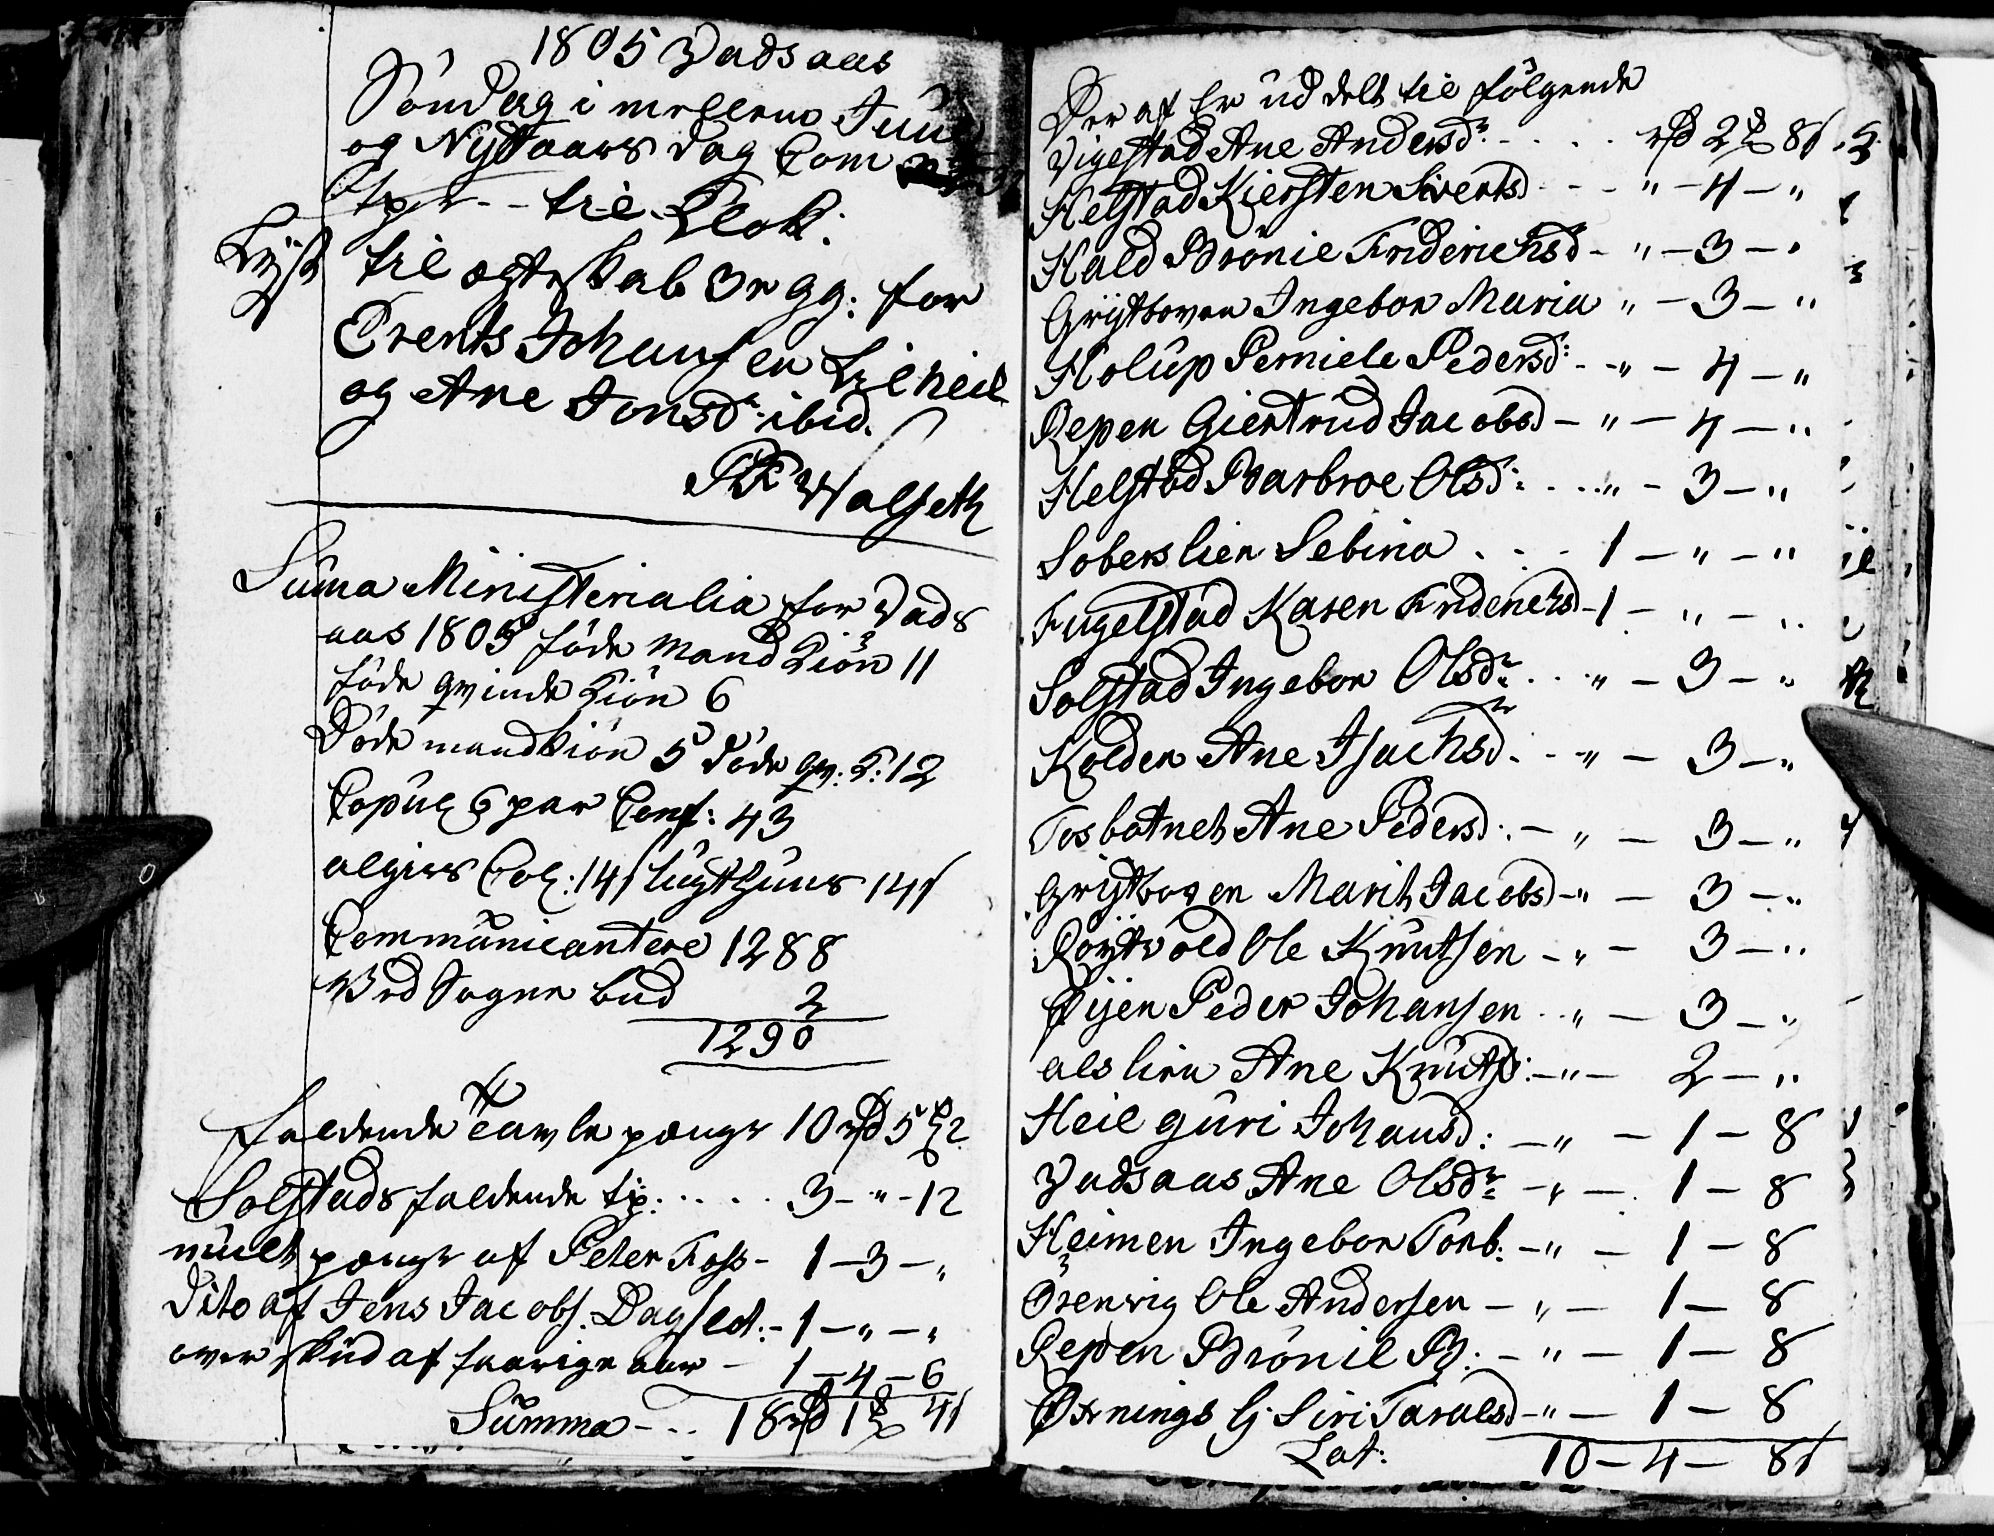 1805 Vadsaas
Søndag i mellem Juul
og Nyttaars Dag Com
til Clok.
Lyst til ægteskab 3e gg: for
Erents Johansen Lilheil
og Ane Jonsdr ibid.
Walseth
Suma Ministerialia for Vads
aas 1805 føde Mandkiøn 11
føde qvinde kiøn 6
Døde mandkiøn 5 døde qv: k: 12
Copul 6 par Conf: 43
algiers Col: 14 s tugthuus 14 s
Communicantere 1288
Ved Sogne bud 2
1290
faldende Tavle penge 10 rd 5 2
Solstads faldende tp: .... 3 - " - 12
mult penge af Peter Foss - 1 - 3 - "
Dito af Jens Jacobs. Dagslet: - 1 - " - "
over skud af forrige aar - 1 - 4 - 6
Summa - .. 18 rd 1 4 s
Der af Er ud delt til følgende
Vigestad Ane Andersdr - . . . rd 2 8 s
Helstad Kiersten Siverts d - - - " - 4 - "
Hald Brønie Friderichs d - " - 3 - "
Grytboven Ingebor Maria " - 3 - "
Holup Perniele Pedersd: - " - 4 - "
Repen Giertrud Jacobsd - " - 4 - "
Helstad Barbroe Olsd: . . . " - 3 - "
Soberslien Sebina . . . 1 - " - "
Fugelstad Karen Friderichsd - 1 - " - "
Solstad Ingebor Olsdr . . " - 3 - "
Kolden Ane Isachsdr . . " - 3 - "
Tosbotnet Ane Pedersd: - " - 3 - "
Grytbogen Marit Jacobsd - " - 3 - "
Røytvold Ole Knutsen - " - 3 - "
Øyen Peder Johansen . . " - 3 - "
als lien Ane Knutsd: - " - 2 - "
Heil guri Johansd: - " - 1 - 8
Vadsaas Ane Olsdr - " - 1 - 8
Heimen Ingebor Torb: - " - 1 - 8
Ørenvig Ole Andersen - " - 1 - 8
Repen Brønil P: - " - 1 - 8
Ørnings Siri Taralsd - " - 1 - 8
Lat: 10 - 4 - 8 s